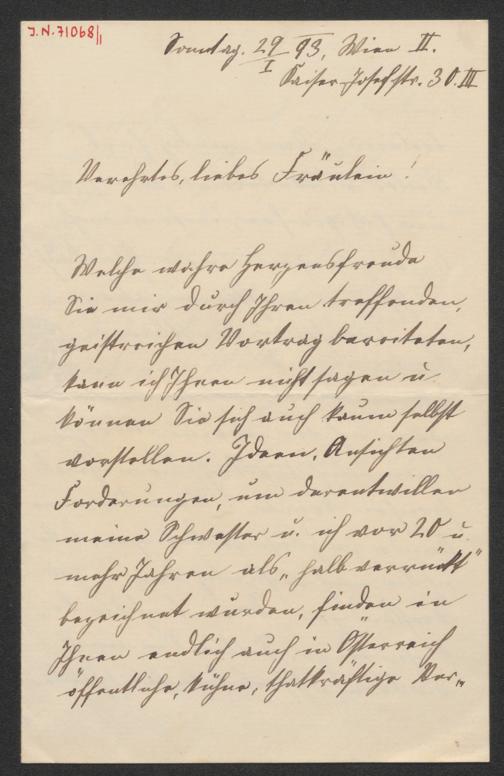 J.N. 71068/1
Sonntag. 29/I 93, Wien II.
Kaiser-Josefstr. 30. III
Verehrtes, liebes Fräulein!
Welche wahre Herzensfreude
Sie mir durch Ihren treffenden,
geistreichen Vortrag bereiteten,
kann ich Ihnen nicht sagen u
können Sie sich auch kaum selbst
vorstellen. Ideen, Ansichten
Forderungen, um derentwillen
meine Schwester u. ich vor 20 u
mehr Jahren als „halb verrückt"
bezeichnet wurden, finden in
Ihnen endlich auch in Österreich
öffentliche, kühne, thatkräftige Ver-